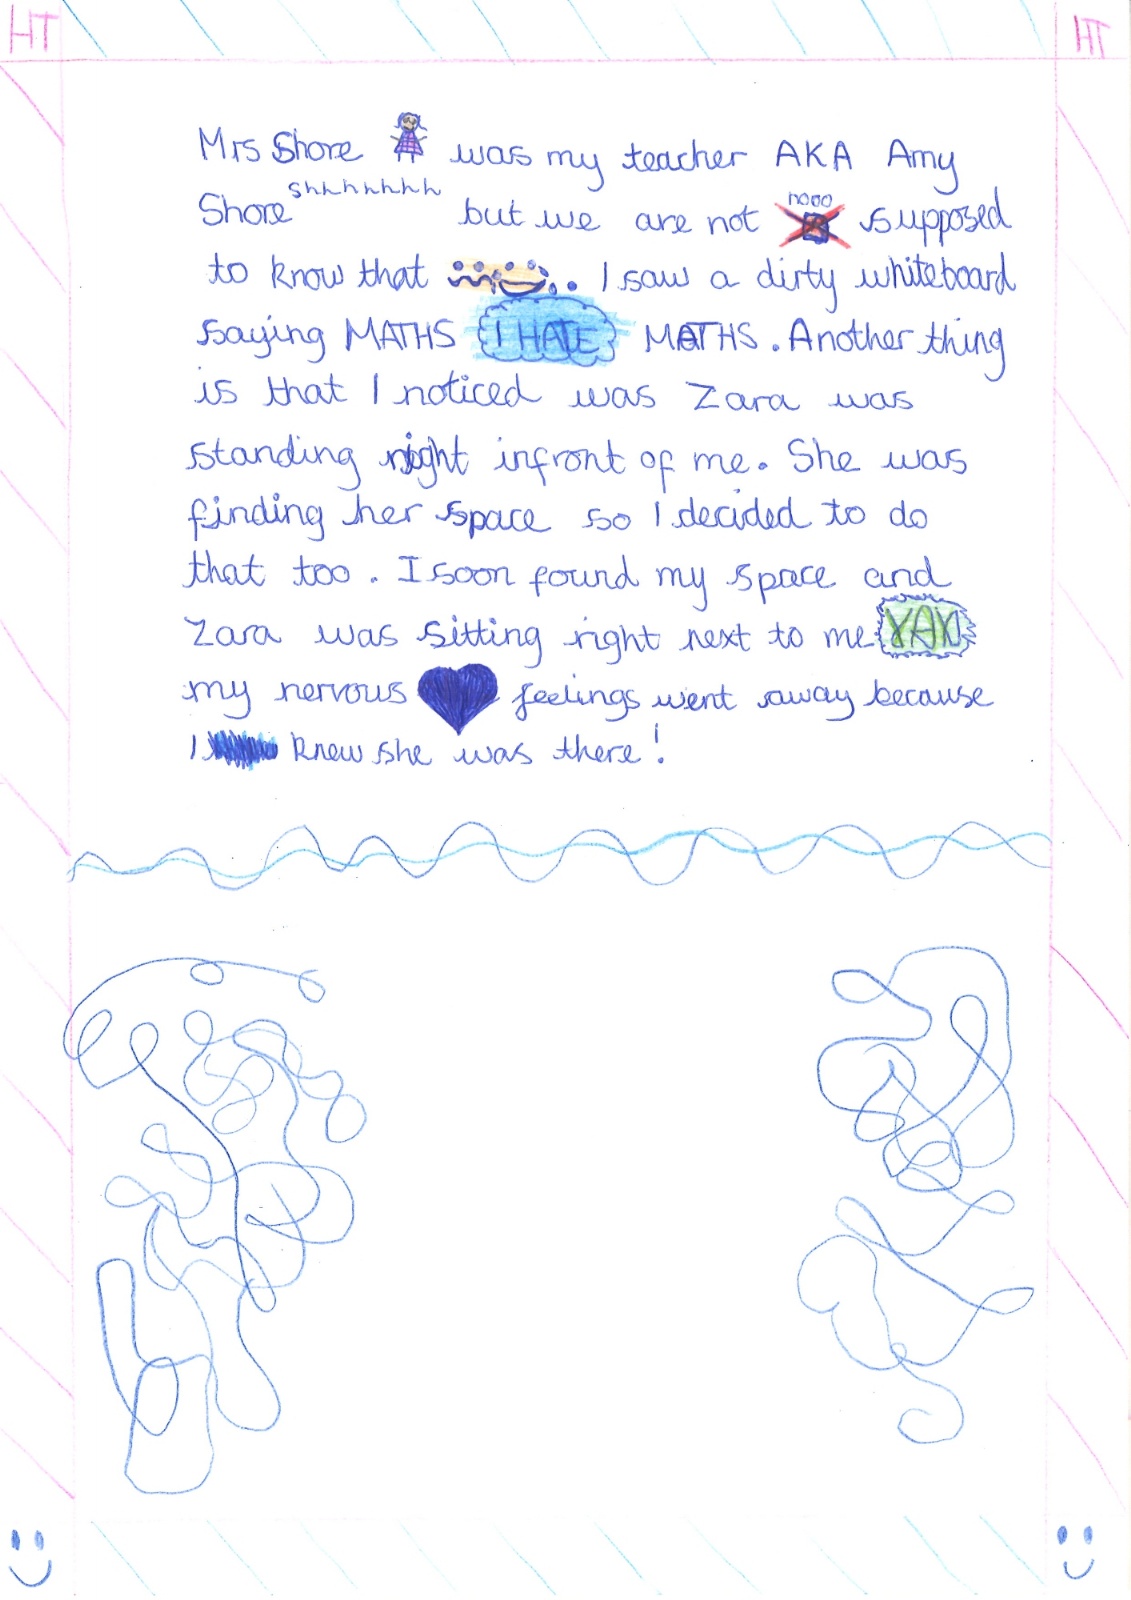 HT HT
Mrs Shore was my teacher AKA Amy
Shore shhhhhhh but we are not nooo supposed
to know that .. I saw a dirty whiteboard
saying MATHS I HATE MATHS. Another thing
is that I noticed was Zara was
standing right infront of me. She was
finding her space so I decided to do
that too. I soon found my space and
Zara was sitting right next to me YAY
my nervous feelings went away because
I knew she was there!